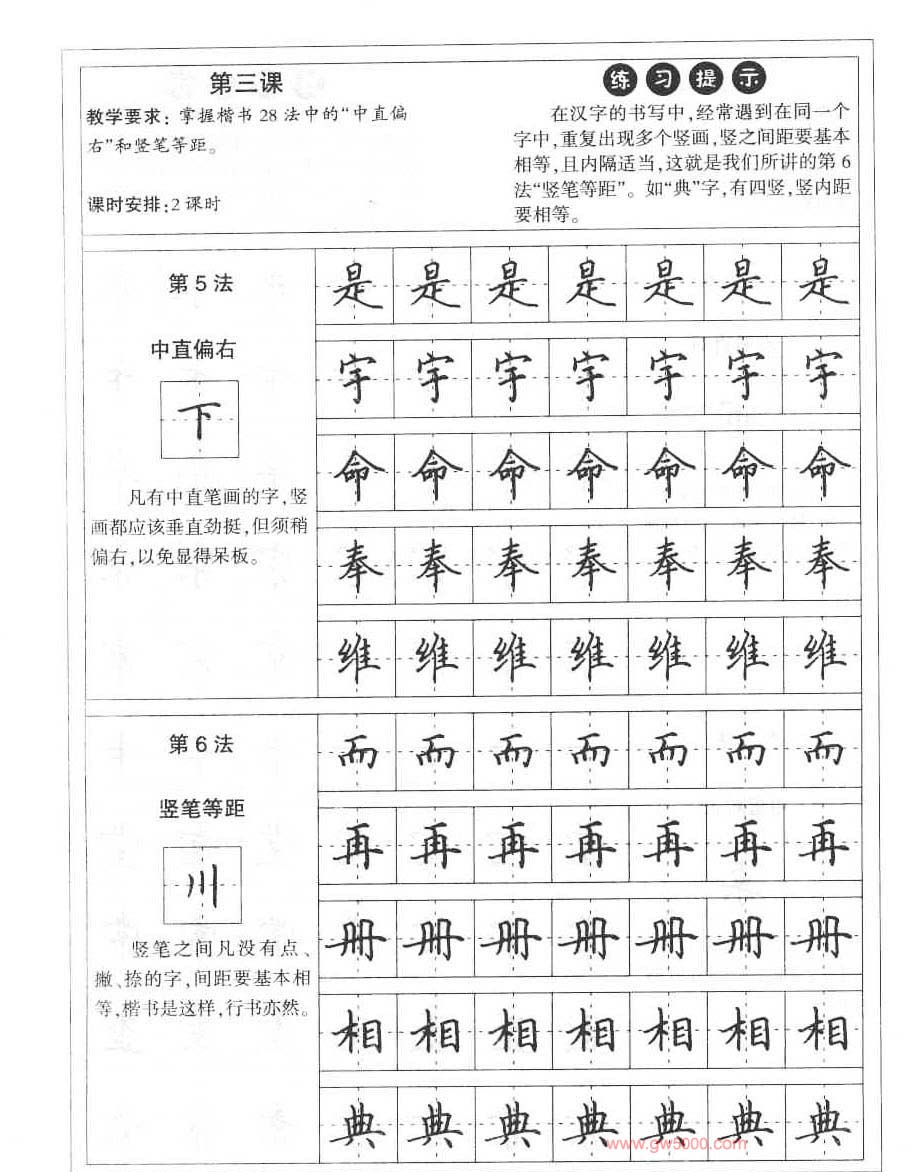 第三课
教学要求：掌握楷书28法中的“中直偏
右”和竖笔等距。
课时安排：2课时
练习提示
在汉字的书写中，经常遇到在同一个
字中，重复出现多个竖画，竖之间距要基本
相等，且内隔适当，这就是我们所讲的第6
法“竖笔等距”。如“典”字，有四竖，竖内距
要相等。
第5法
中直偏右
下
凡有中直笔画的字，竖
画都应该垂直劲挺，但须稍
偏右，以免显得呆板。
是是是是是是是
宇宇宇宇宇宇宇
命命命命命命命
奉奉奉奉奉奉奉
维维维维维维维
第6法
竖笔等距
川
竖笔之间凡没有点、
撇、捺的字，间距要基本相
等，楷书是这样，行书亦然。
而而而而而而而
再再再再再再再
册册册册册册册
相相相相相相相
典典典典典典典
www.gw5000.com